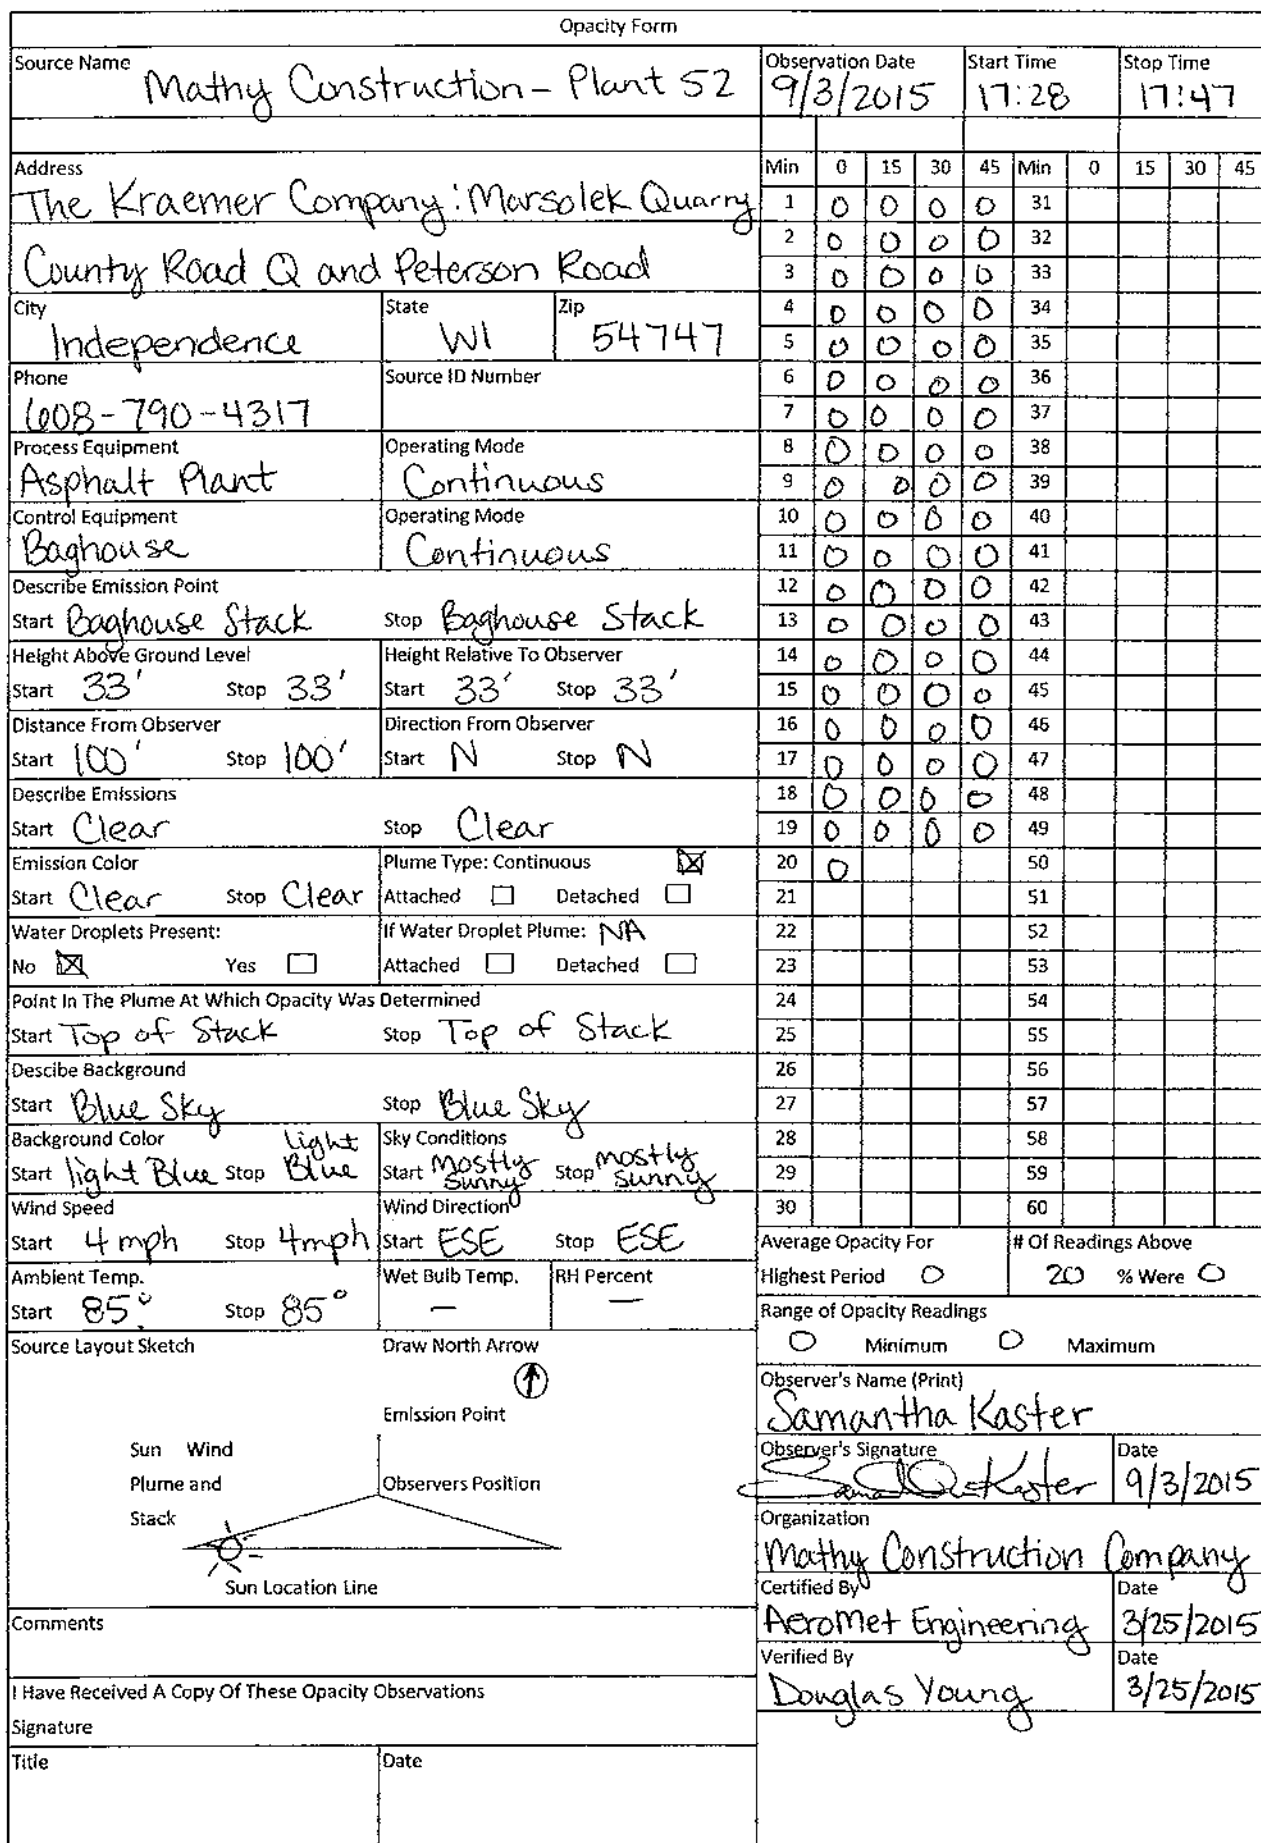 Opacity Form
Source Name Mathy Construction - Plant 52
Observation Date 9/3/2015
Start Time 17:28
Stop Time 17:47
Address
The Kraemer Company: Marsolek Quarry
County Road Q and Peterson Road
City Independence
State WI
Zip 54747
Phone 608-790-4317
Source ID Number
Process Equipment Asphalt Plant
Operating Mode Continuous
Control Equipment Baghouse
Operating Mode Continuous
Describe Emission Point
Start Baghouse Stack Stop Baghouse Stack
Height Above Ground Level
Start 33' Stop 33'
Height Relative To Observer
Start 33' Stop 33'
Distance From Observer
Start 100' Stop 100'
Direction From Observer
Start N Stop N
Describe Emissions
Start Clear Stop Clear
Emission Color
Start Clear Stop Clear
Plume Type: Continuous ☒
Attached ☐ Detached ☐
Water Droplets Present:
No ☒ Yes ☐
If Water Droplet Plume: NA
Attached ☐ Detached ☐
Point In The Plume At Which Opacity Was Determined
Start Top of Stack Stop Top of Stack
Descibe Background
Start Blue Sky Stop Blue Sky
Background Color
Start light Blue Stop light Blue
Sky Conditions
Start mostly sunny Stop mostly sunny
Wind Speed
Start 4 mph Stop 4mph
Wind Direction
Start ESE Stop ESE
Ambient Temp.
Start 85° Stop 85°
Wet Bulb Temp. —
RH Percent —
Source Layout Sketch Draw North Arrow
Emission Point
Sun Wind
Plume and
Stack
Observers Position
Sun Location Line
Comments
I Have Received A Copy Of These Opacity Observations
Signature
Title Date
Min 0 15 30 45 Min 0 15 30 45
1 0 0 0 0 31
2 0 0 0 0 32
3 0 0 0 0 33
4 0 0 0 0 34
5 0 0 0 0 35
6 0 0 0 0 36
7 0 0 0 0 37
8 0 0 0 0 38
9 0 0 0 0 39
10 0 0 0 0 40
11 0 0 0 0 41
12 0 0 0 0 42
13 0 0 0 0 43
14 0 0 0 0 44
15 0 0 0 0 45
16 0 0 0 0 46
17 0 0 0 0 47
18 0 0 0 0 48
19 0 0 0 0 49
20 0 50
21 51
22 52
23 53
24 54
25 55
26 56
27 57
28 58
29 59
30 60
Average Opacity For
Highest Period 0
# Of Readings Above
20 % Were 0
Range of Opacity Readings
0 Minimum 0 Maximum
Observer's Name (Print)
Samantha Kaster
Observer's Signature Date
Kaster 9/3/2015
Organization
Mathy Construction Company
Certified By Date
AeroMet Engineering 3/25/2015
Verified By Date
Douglas Young 3/25/2015